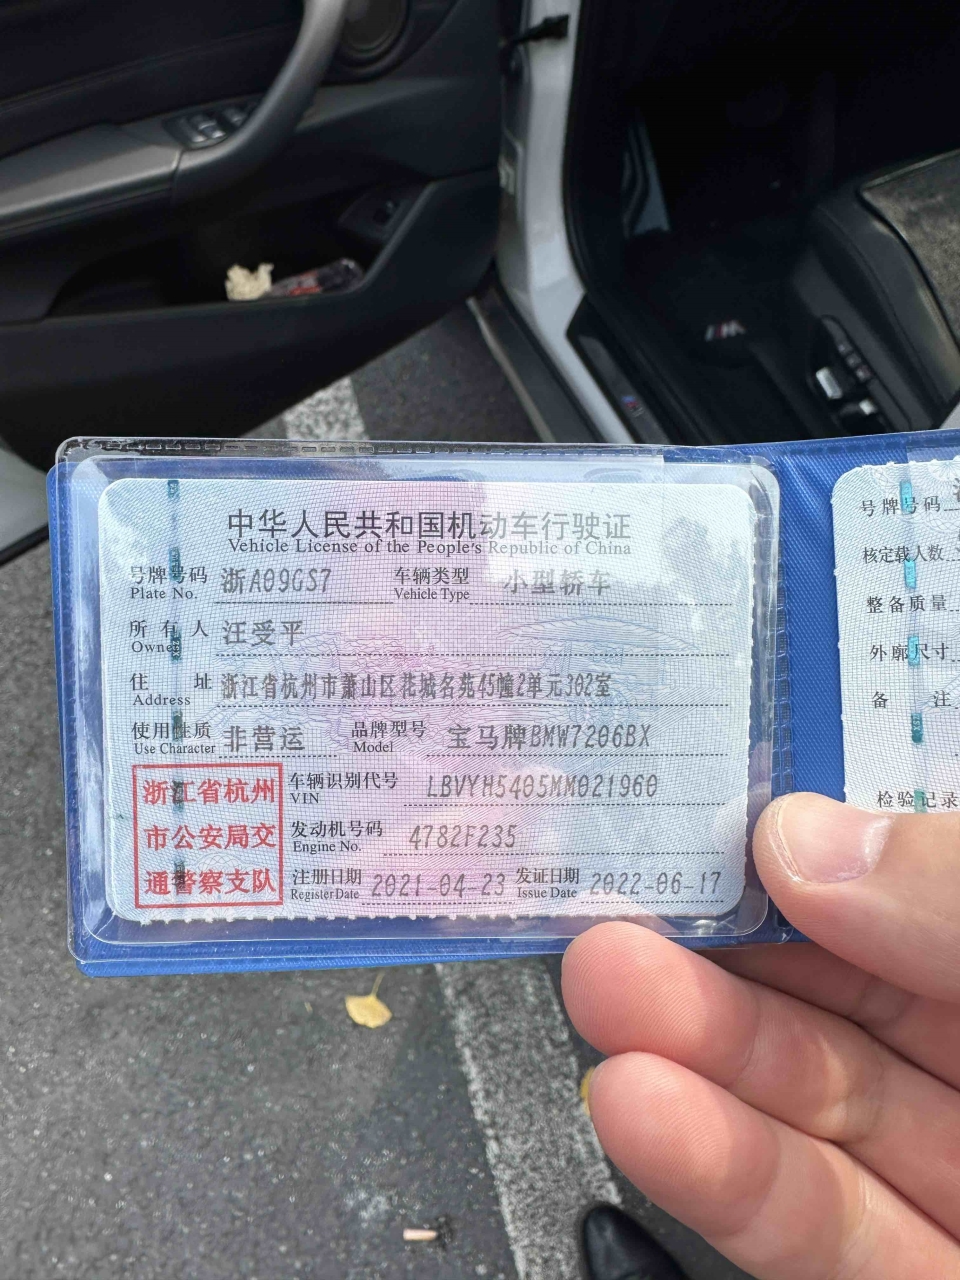 中华人民共和国机动车行驶证
Vehicle License of the People's Republic of China
号牌号码 浙A09GS7 车辆类型 小型轿车
Plate No. Vehicle Type
所有人 汪受平
Owner
住址 浙江省杭州市萧山区花城名苑45幢2单元302室
Address
使用性质 非营运 品牌型号 宝马牌BMW7206BX
Use Character Model
浙江省杭州
市公安局交
通警察支队
车辆识别代号 LBVYH5405MM021960
VIN
发动机号码 4782F235
Engine No.
注册日期 2021-04-23 发证日期 2022-06-17
Register Date Issue Date
号牌号码
核定载人数
整备质量
外廓尺寸
备注
检验记录
M
M